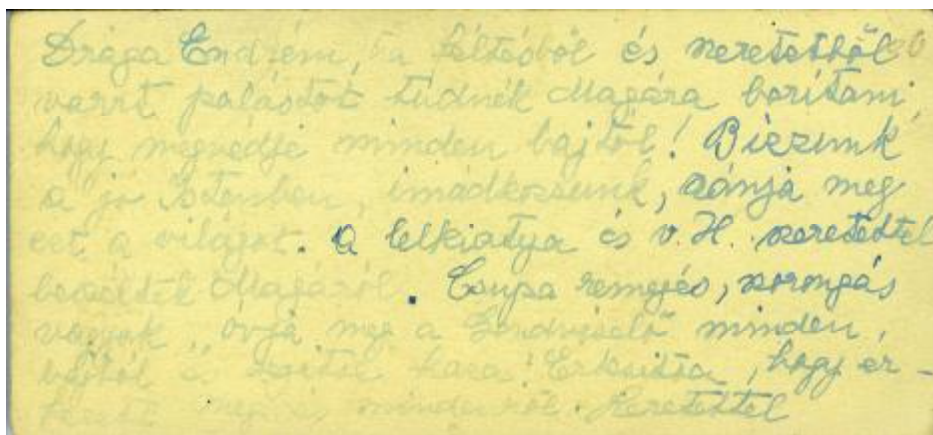 Drága Endrém, ha féltésből és szeretetből
varrt palástot tudnék Magára borítani,
hogy megvédje minden bajtól! Bízzunk
a jó Istenben, imádkozzunk, szánja meg
ezt a világot. A lelkiatya és v. H. szeretettel
beszéltek Magáról. Csupa remegés, szorongás
vagyok, óvja meg a Gondviselő minden
bajtól és haza! hogy ér-
kezett meg és mindenről. Szeretettel